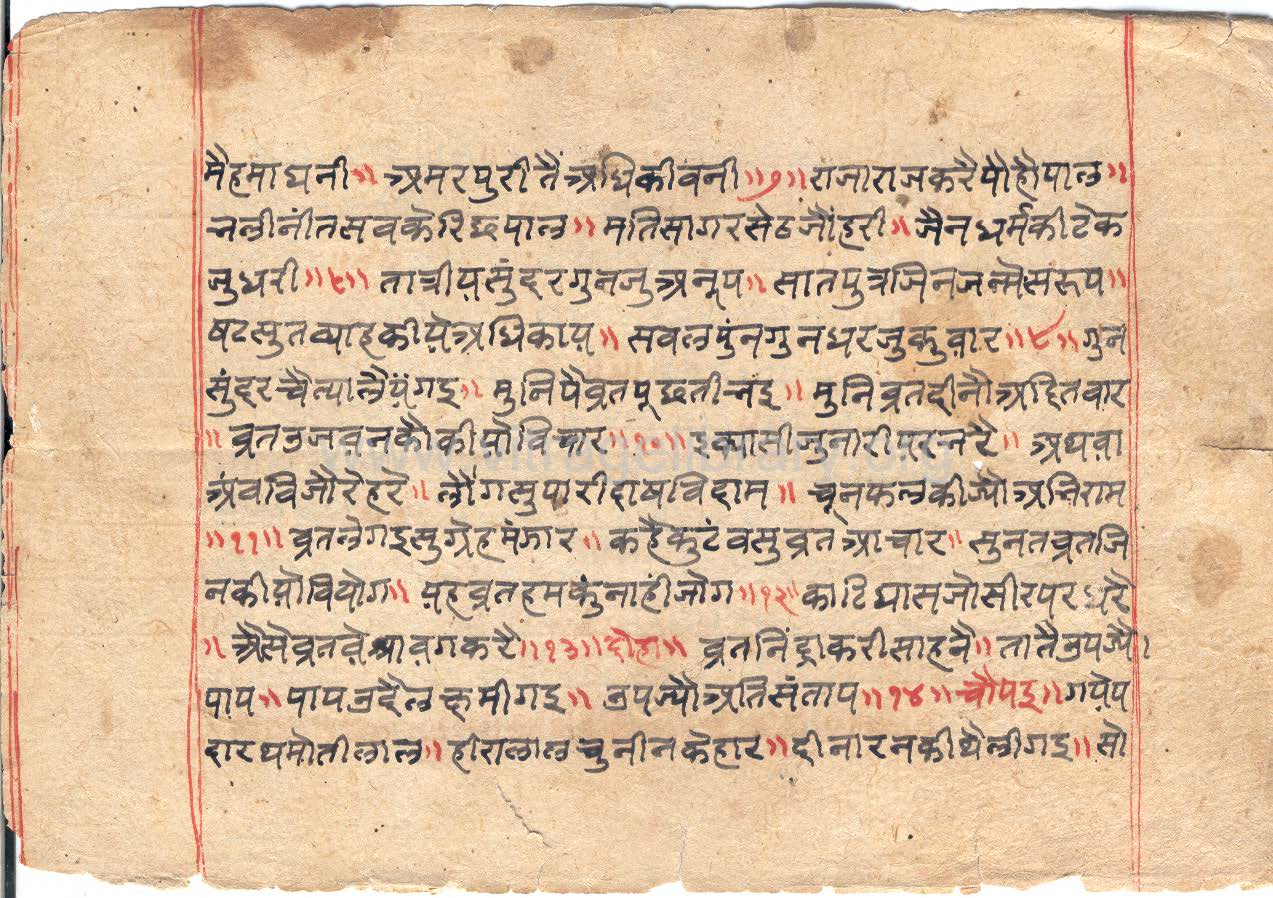 मैहमाघनी॥ अमरपुरीतैंअधिकीवनी॥७॥राजाराजकरैपौहौपाल॥
चलीनींतसवकेरिछपाल॥मतिसागरसेठजौंहरी॥जैनधर्मकीटेक
जुधरी॥८॥ तात्रीयसुंदरगुनजुअनूप॥सातपुत्रजिनजन्मेंसरूप॥
षटसुतव्याहकीयेअधिकाय॥सवलपुंनगुनधरजुकुवार॥९॥गुन
सुंदरचैत्यालैयंगइ॥मुनिपैव्रतपूछतीनइ॥मुनिव्रतदीनौअदितवार
॥व्रतउजवनकौकीयोविचार॥१०॥इक्यासीजुनारीपरनरै॥अथवा
अंवविजौरेहरे॥लौंगसुपारीदाषविदाम॥चूनफलकीज्योअनिराम
॥११॥व्रतलेगइसुग्रेहमंझार॥कहैकुटंवसुव्रतआचार॥सुनतव्रतजि
नकीयोवियोग॥यहव्रतहमकुंनाहींजोग॥१२॥काटिघासजोसीरपरधरे
॥अैसेव्रतवेश्रावगकरै॥१३॥दोहा॥ व्रतनिंद्याकरीसाहनै॥तातैउपज्यो
पाप॥पापउदैलक्ष्मीगइ॥ उपज्यौअतिसंताप॥१४॥चौपइ॥गयेप
दारथमोतीलाल॥हीरालालचुनीनकेहार॥दीनारनकीथैलीगइ॥सो
www.vitragelibrary.org